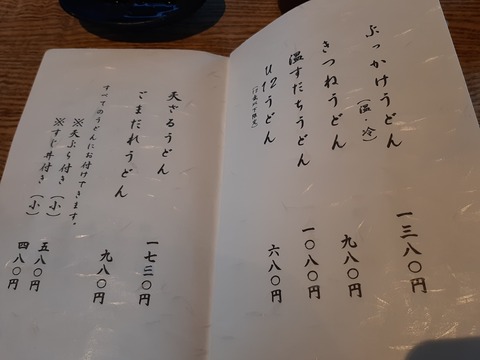 ぶっかけうどん
(温・冷)
一三八〇円
きつねうどん
九八〇円
温すだちうどん
一〇八〇円
U12うどん
(12歳以下限定)
六八〇円
天ざるうどん
一七三〇円
ごまだれうどん
九八〇円
すべてのうどんにお付けできます。
※天ぷら付き (小)
五八〇円
※すじ丼付き (小)
四八〇円